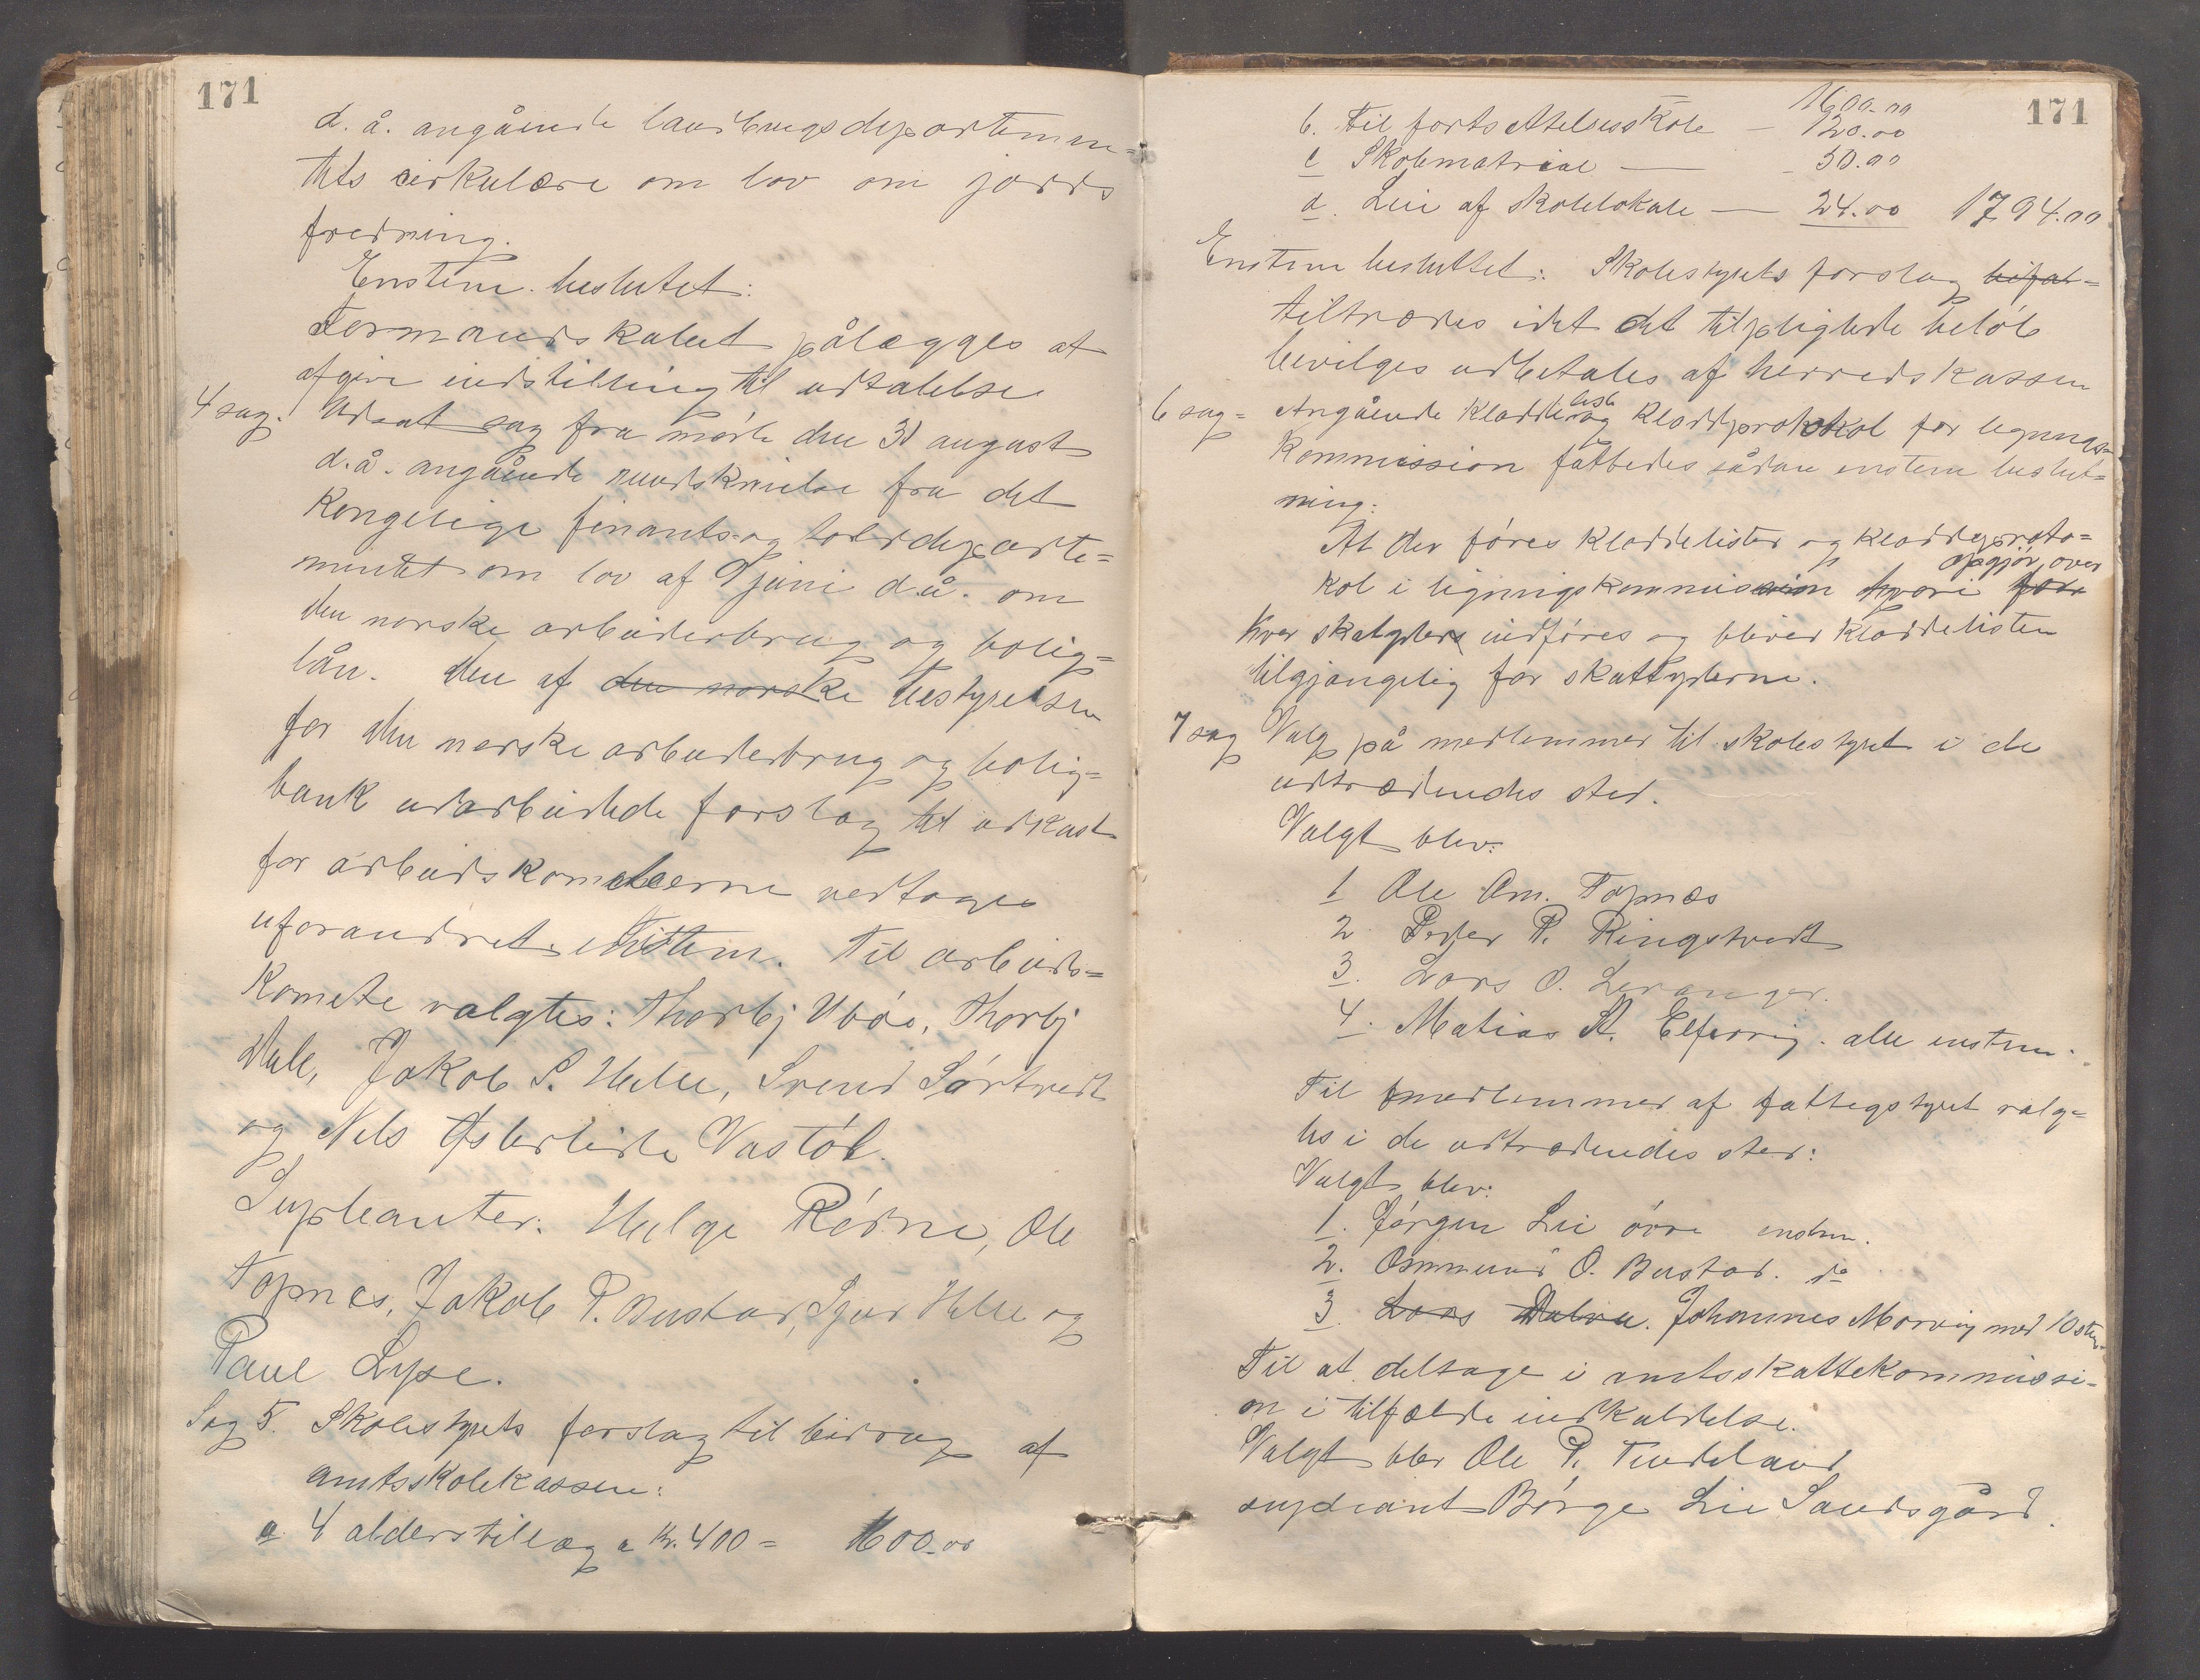 171
d. å. angående landbrugsdepartemen=
tets cirkulære om lov om jords
fredning.
Enstem. beslutet:
Formandskabet pålægges at
afgive indstilling til udtalelse
4 sag. Udsat sag fra møde den 31 august
d.å. angående rundskrivelse fra det
Kongelige finants- og tolddeparte=
mentet om lov af 9 juni d.å. om
den norske arbeiderbrug og bolig=
lån. Den af den norske bestyrelsen
for den norske arbeiderbrug og bolig=
bank udarbeidede forslag til udkast
for arbeidskomiteerne vedtoges
uforandret enstem. Til arbeids=
Komite valgtes: Thorbj Vbøe, Thorbj
Helle, Jakob S. Helle, Svend Sørtvedt
og Nels Østerleide Vastøl.
Supleanter: Helge Rødne, Ole
Topnes, Jakob P. Bustad, Sjur Helle og
Paul Lyse.
Sag 5. Skolestyrets forslag til bidrag af
amtsskolekassen:
a 4 alderstillæg a Kr. 400 = 1600.00
171
1600.00
b. Til fortsættelsesskole — 120.00
c Skolematriel — 50.00
d. Leie af skolelokale — 24.00 1794.00
Enstem besluttet: Skolestyrets forslag bifal=
tiltrædes idet det tilpligtede beløb
bevilges udbetales af herredskassen
6 sag= Angående Kladdeliste og Kladdprotokol for lignings=
Kommission fattedes sådan enstem beslut=
ning:
At der føres Kladdelister og Kladdeproto=
kol i ligningskommission hvori for opgjør over
hver skatyder indføres og bliver Kladdelisten
tilgjængelig for skattyderne.
7 sag Valg på medlemmer til skolestyret i de
udtrædendes sted.
Valgt blev:
1 Ole Om. Topnæs
2 Peder P. Ringstvedt
3. Lars O. Leranger.
4. Matias A. Elfarvig. alle enstem.
Til medlemmer af fattigstyret valg=
tes i de udtrædendes sted:
Valgt blev:
1. Jørgen Lie øvre enstem.
2. Osmund O. Bustad. do
3. Lars Dalva. Johannes Morvig med 10 stm.
Til at deltage i amtsskattekommissi=
on i tilfælde indkaldelse.
Valgt blev Ole P. Tindeland
supleant Børge Lie Sandsgård.